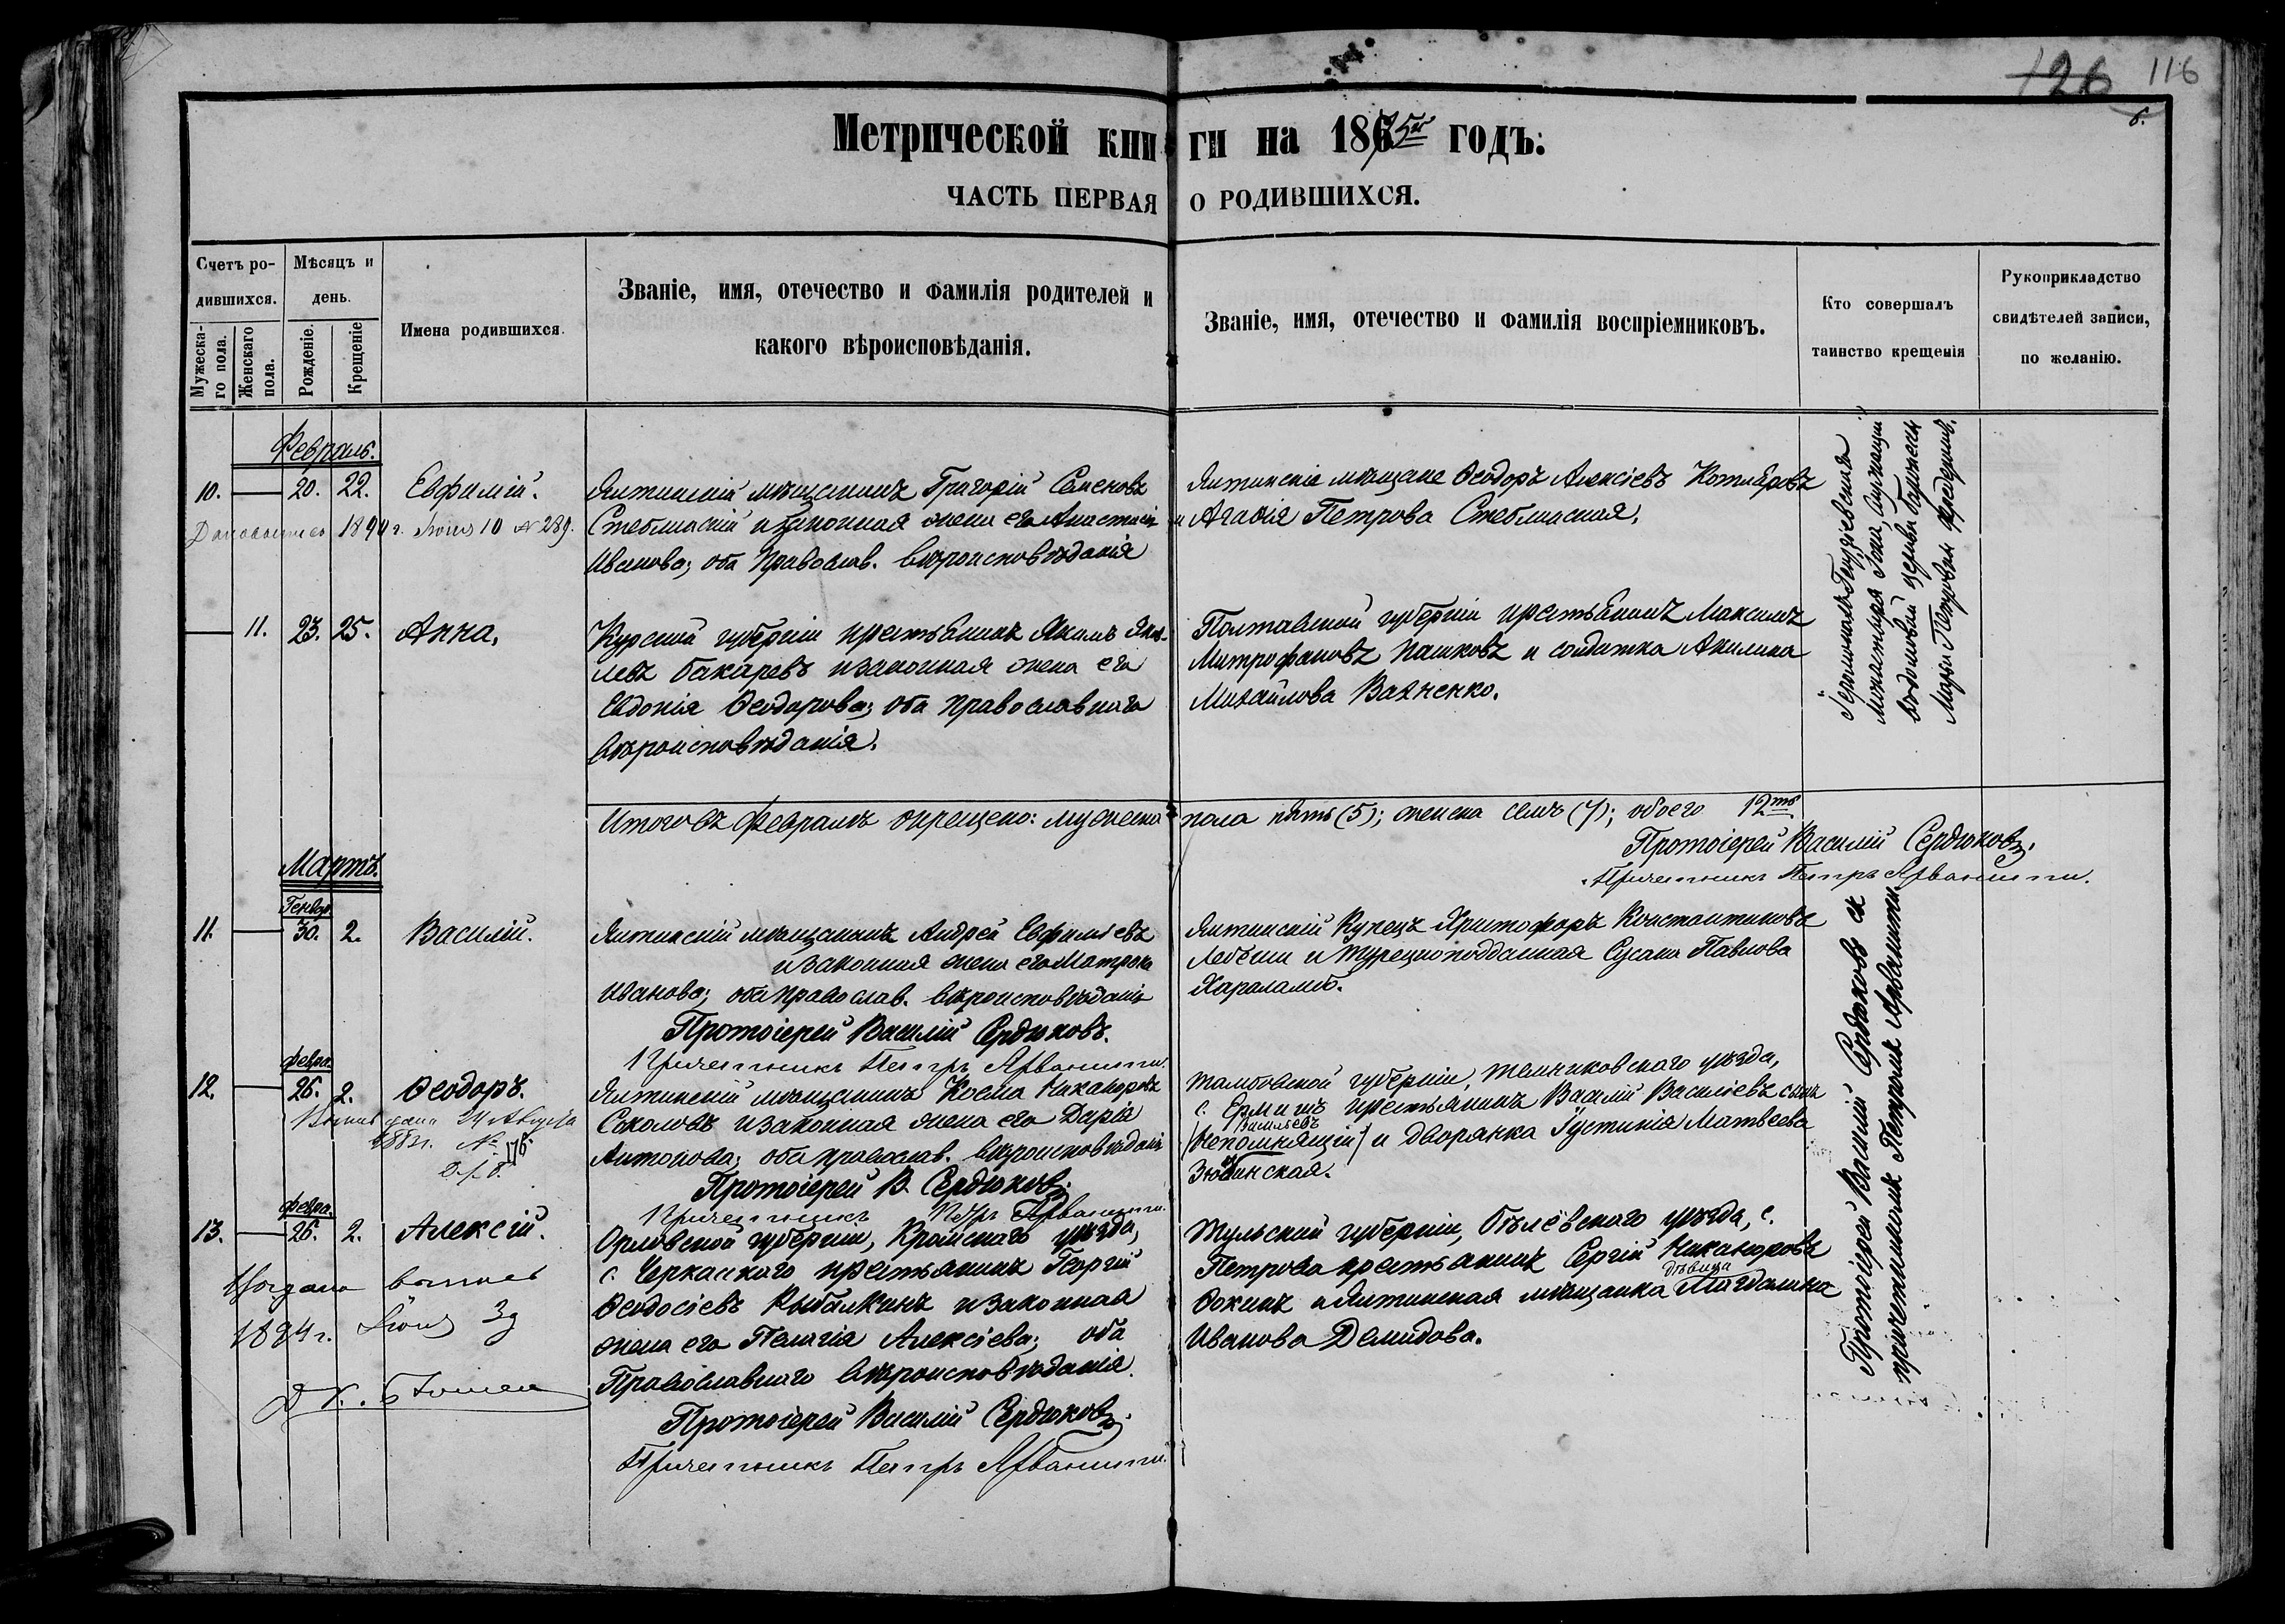 126 116
6.
Метрической книги на 1875й годъ:
ЧАСТЬ ПЕРВАЯ О РОДИВШИХСЯ.
Счетъ родившихся.
Мужескаго пола.
Женскаго пола.
Мѣсяцъ и день.
Рожденіе.
Крещеніе
Имена родившихся.
Званіе, имя, отечество и фамилія родителей и
какого вѣроисповѣданія.
Званіе, имя, отечество и фамилія воспріемниковъ.
Кто совершалъ
таинство крещенія
Рукоприкладство
свидѣтелей записи,
по желанію.
Февраль.
10. 20. 22. Евфимій.
1894 г. 10 № 289.
Ялтинскій мѣщанинъ Григорій Семеновъ
Стеблискій и законная жена его Анастасія
Иванова; оба Православ. вѣроисповѣданія
Ялтинскіе мѣщане Ѳеодоръ Алексіевъ Котляровъ
и Агафія Петрова Стеблиская.
11. 23. 25. Анна.
Курской губерніи крестьянинъ Якимъ Яков-
левъ Бакаревъ и законная жена его
Евдокія Ѳеодорова; оба православнаго
вѣроисповѣданія.
Полтавской губерніи крестьянинъ Максимъ
Митрофановъ Пашковъ и солдатка Акилина
Михайлова Вахненко.
Монастыря
Итого въ Февралѣ крещено: мужеска пола пять (5); женска семь (7); обоего 12ть
Протоіерей Василій Сердюковъ.
Причетникъ Петръ Арванити.
Мартъ.
Генвар.
11. 30. 2. Василій.
Ялтинскій мѣщанинъ Андрей Евфиміевъ
и законная жена его Матрона
Иванова; оба православ. вѣроисповѣданія
Протоіерей Василій Сердюковъ.
Причетникъ Петръ Арванити.
Ялтинскій Купецъ Христофоръ Константиновъ
и Турецкоподданная Сусана Павлова
Хараламб.
Февра.
12. 26. 2. Ѳеодоръ.
дана 24 Августа
№ 176.
Ялтинскій мѣщанинъ Косма Никаноровъ
Соколовъ и законная жена его Дарія
Антонова; оба православ. вѣроисповѣданія
Протоіерей В. Сердюковъ.
Причетникъ Петръ Арванити.
Тамбовской губерніи, Темниковскаго уѣзда,
с. Ермишъ крестьянинъ Василій Василіевъ сынъ
Васильевъ
(Непомнящій) и дворянка Іустинія Матвѣева
Февра.
13. 26. 2. Алексій.
1894 г.
Орловской губерніи, Кромскаго уѣзда,
с. Черкасскаго крестьянинъ Георгій
Ѳеодосіевъ Кыбалкинъ и законная
жена его Пелагія Алексіева; оба
Православнаго вѣроисповѣданія.
Протоіерей Василій Сердюковъ.
Причетникъ Петръ Арванити.
Тульской губерніи, Бѣлёвскаго уѣзда, с.
Петрова крестьянинъ Сергій Никаноровъ
дѣвица
Ѳокинъ и Ялтинская мѣщанка Магдалина
Иванова Демидова.
Протоіерей Василій Сердюковъ съ
причетникомъ Петромъ Арванити.